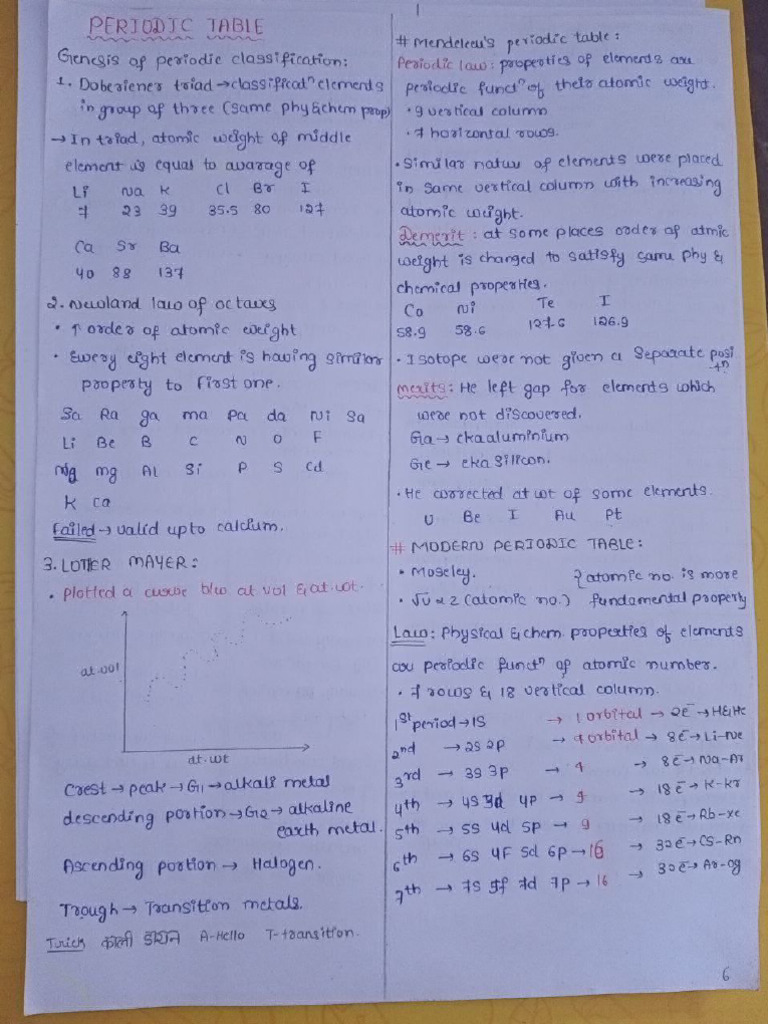 PERIODIC TABLE
Genesis of periodic classification:
1. Doberiener triad → classificatⁿ elements
in group of three (same phy & chem prop)
→ In triad, atomic weight of middle
element is equal to avarage of
Li Na K Cl Br I
7 23 39 35.5 80 127
Ca Sr Ba
40 88 137
2. Newland law of octaves
• ↑ order of atomic weight
• Every eight element is having similar
property to first one.
Sa Ra ga ma Pa da Ni Sa
Li Be B C N O F
Na mg AL Si P S Cd
K Ca
Failed → valid upto calcium.
3. LOTHER MAYER:
• plotted a curve b/w at vol & at.wt.
at.vol
at.wt
Crest → peak → G1 → alkali metal
descending portion → G2 → alkaline
earth metal.
Ascending portion → Halogen.
Trough → Transition metals.
Trick काली डायन A-Hello T-transition.
# Mendeleev's periodic table:
Periodic law: properties of elements are
periodic functⁿ of their atomic weight.
• 9 vertical column
• 7 horizontal rows.
• Similar natur of elements were placed
in same vertical column with increasing
atomic weight.
Demerit: at some places order of atmic
weight is changed to satisfy same phy &
chemical properties.
Co Ni Te I
58.9 58.6 127.6 126.9
• Isotope were not given a separate posi
-tⁿ
merits: He left gap for elements which
were not discovered.
Ga → ekaaluminium
Ge → eka silicon.
• He corrected at wt of some elements.
U Be I Au Pt
# MODERN PERIODIC TABLE:
• Moseley. } atomic no. is more
• √ν ∝ Z (atomic no.) fundamental property
Law: Physical & chem. properties of elements
are periodic functⁿ of atomic number.
• 7 rows & 18 vertical column.
1st period → 1S → 1 orbital → 2e⁻ → H & He
2nd → 2S 2p → 4 orbital → 8e⁻ → Li-Ne
3rd → 3S 3p → 4 → 8e⁻ → Na-Ar
4th → 4S 3d 4p → 9 → 18e⁻ → K-Kr
5th → 5S 4d 5p → 9 → 18e⁻ → Rb-Xe
6th → 6S 4F 5d 6p → 16 → 32e⁻ → CS-Rn
7th → 7S 5f 7d 7p → 16 → 32e⁻ → Ar-Og
6